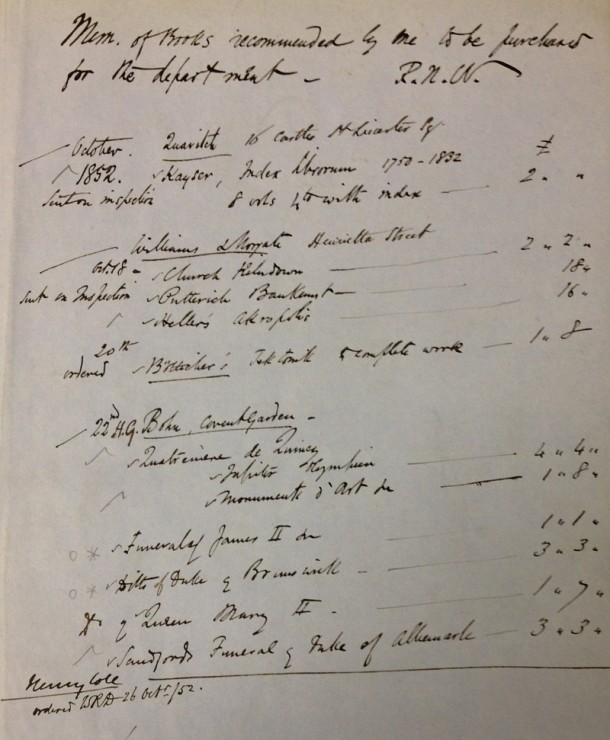 Mem. of Books recommended by me to be purchased
for the department — R.N.W.
October. Quaritch 16 Castle St Leicester Sq
1852. Kayser, Index librorum 1750-1832 £
sent on inspection 8 vols 4to with index — 2 " "
Williams & Norgate Henrietta Street
Oct. 18 - Church — 2 " 2 "
sent on Inspection Puttrich Baukunst — 18 "
Heller's Akropolis — 16 "
20th
ordered Bötticher's Tektonik complete work — 1 " 8
22nd H.G. Bohn, Covent Garden -
Quatremere de Quincy
Jupiter Olympien — 4 " 4 "
Monuments d'Art do — 1 " 8 "
o * Funeral of James II do — 1 " 1 "
o * Ditto of Duke of Brunswick — 3 " 3 "
Do of Queen Mary II - — 1 " 7 "
Sandford's Funeral of Duke of Albemarle — 3 " 3 "
Henry Cole
ordered WRD 26 Oct./52.